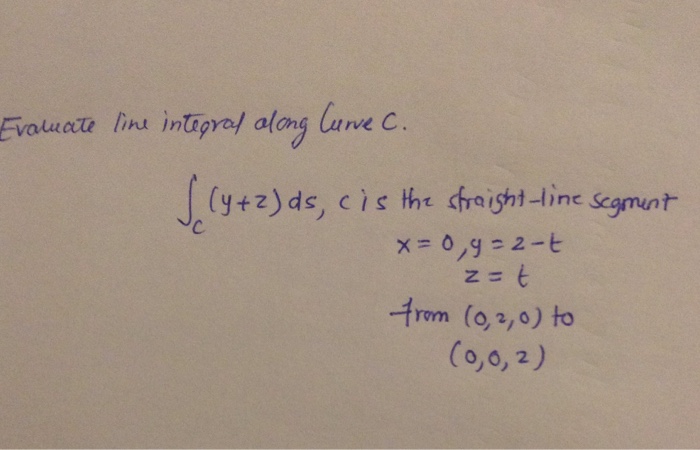 Evaluate line integral along Curve C.
∫_C (y+z) ds, c is the straight-line segment
x = 0, y = 2-t
z = t
from (0,2,0) to
(0,0,2)